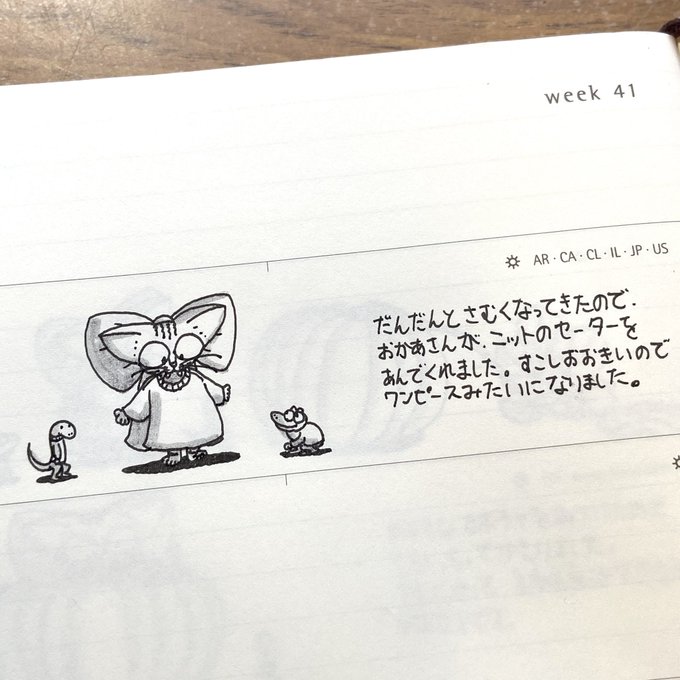 week 41
AR・CA・CL・IL・JP・US
だんだんとさむくなってきたので、
おかあさんが、ニットのセーターを
あんでくれました。すこしおおきいので
ワンピースみたいになりました。